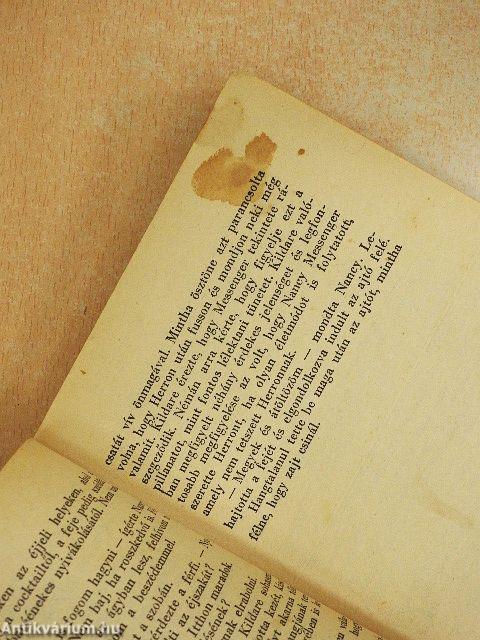 csatát vív önmagával. Mintha ösztöne azt parancsolta
volna, hogy Herron után fusson és mondjon neki még
valamit. Kildare érezte, hogy Messenger tekintete rá-
szegeződik. Némán arra kérte, hogy figyelje ezt a
pillanatot, mint fontos lélektani tünetet. Kildare való-
ban megfigyelt néhány érdekes jelenséget és legfon-
tosabb megfigyelése az volt, hogy Nancy Messenger
szerette Herront, ha olyan életmódot is folytatott,
amely nem tetszett Herronnak.
— Megyek és átöltözöm — mondta Nancy. Le-
hajtotta a fejét és elgondolkozva indult az ajtó felé.
Hangtalanul tette be maga után az ajtót, mintha
félne, hogy zajt csinál.
az éjjeli helyeken,
cocktailtól, a feje pedig
nyivákolásától.
hagyni —
baj, ha rosszkedvű
ágyban lesz,
a beszédemmel
a szolán.
kérdezte a férfi.
az éjszakát?
Itthon maradok
elrabolni
Kildare
Antikvárium.hu